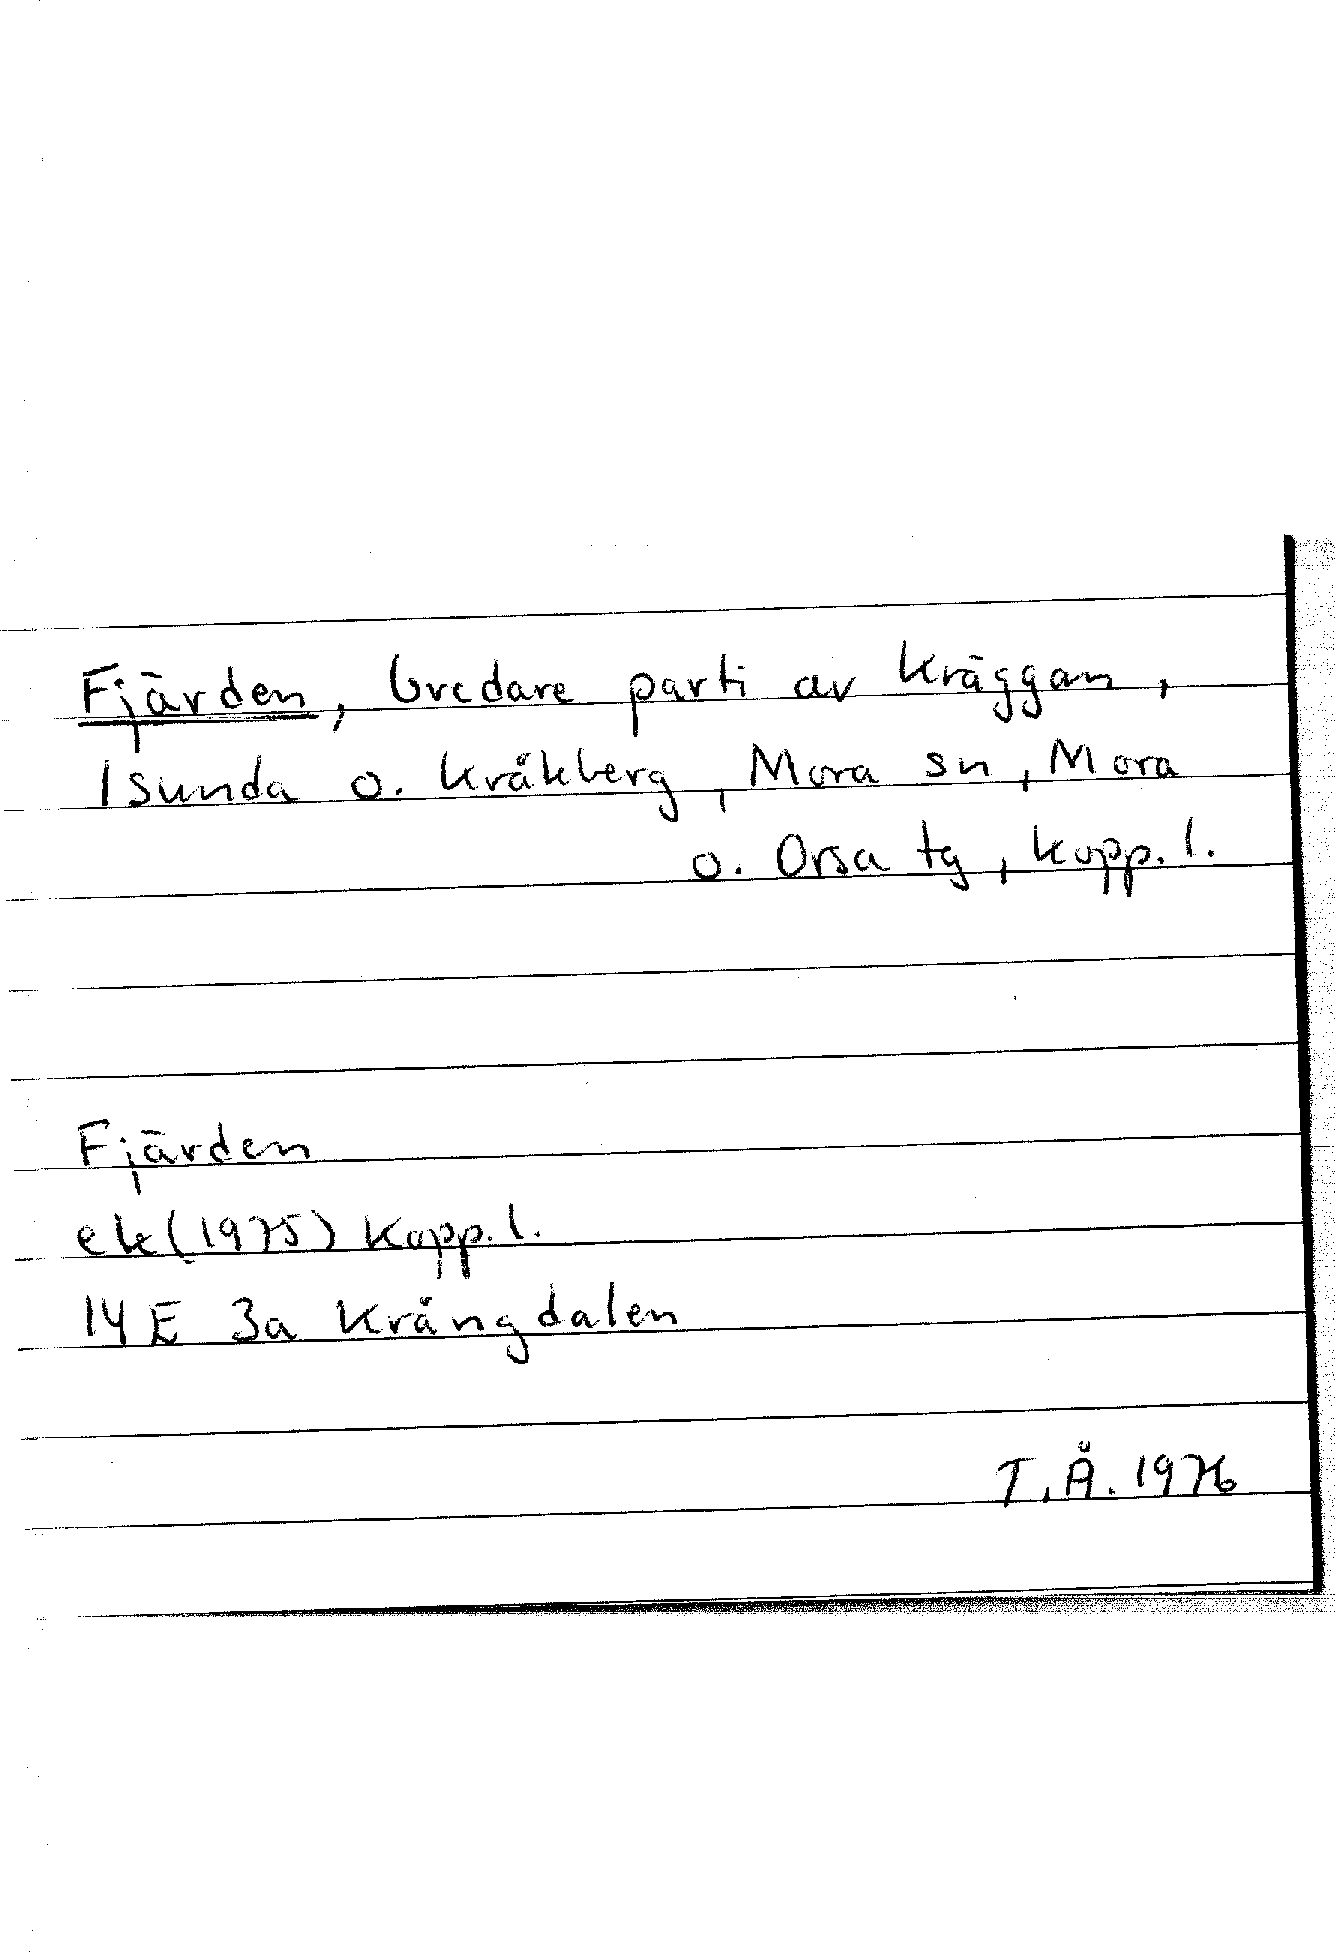 Fjärden, bredare parti av Kräggan,
Isunda o. Kråkberg, Mora sn, Mora
o. Orsa tg, Kopp. l.
Fjärden
ek (1975) Kopp. l.
14 E 3a Krångdalen
T.Å. 1976